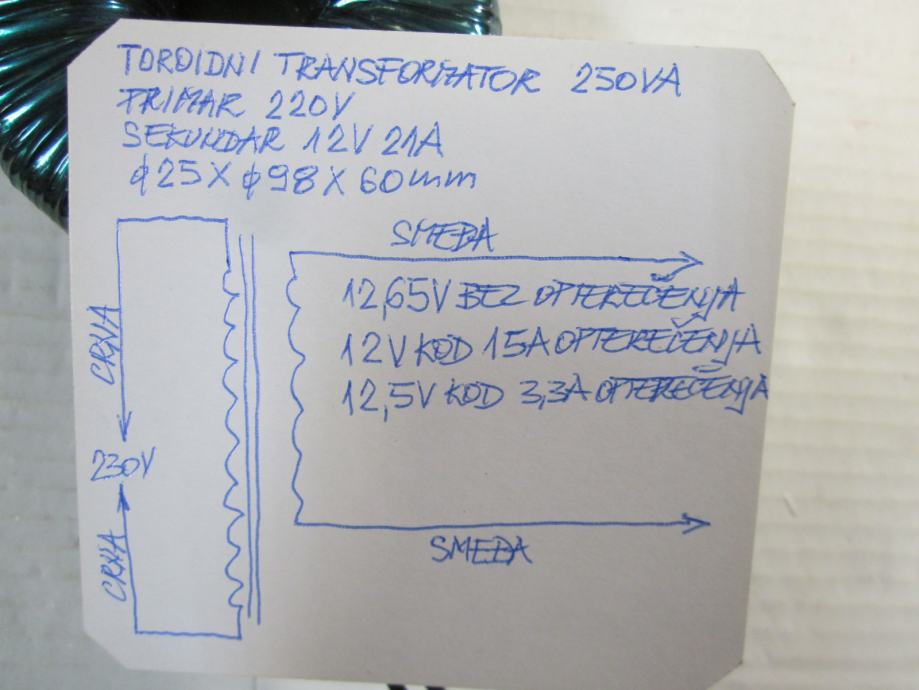 TOROIDNI TRANSFORMATOR 250VA
PRIMAR 220V
SEKUNDAR 12V 21A
φ25 X φ98 X 60mm
SMEĐA
12,65V BEZ OPTEREČENJA
12V KOD 15A OPTEREČENJA
12,5V KOD 3,3A OPTEREČENJA
CRNA
230V
CRNA
SMEĐA